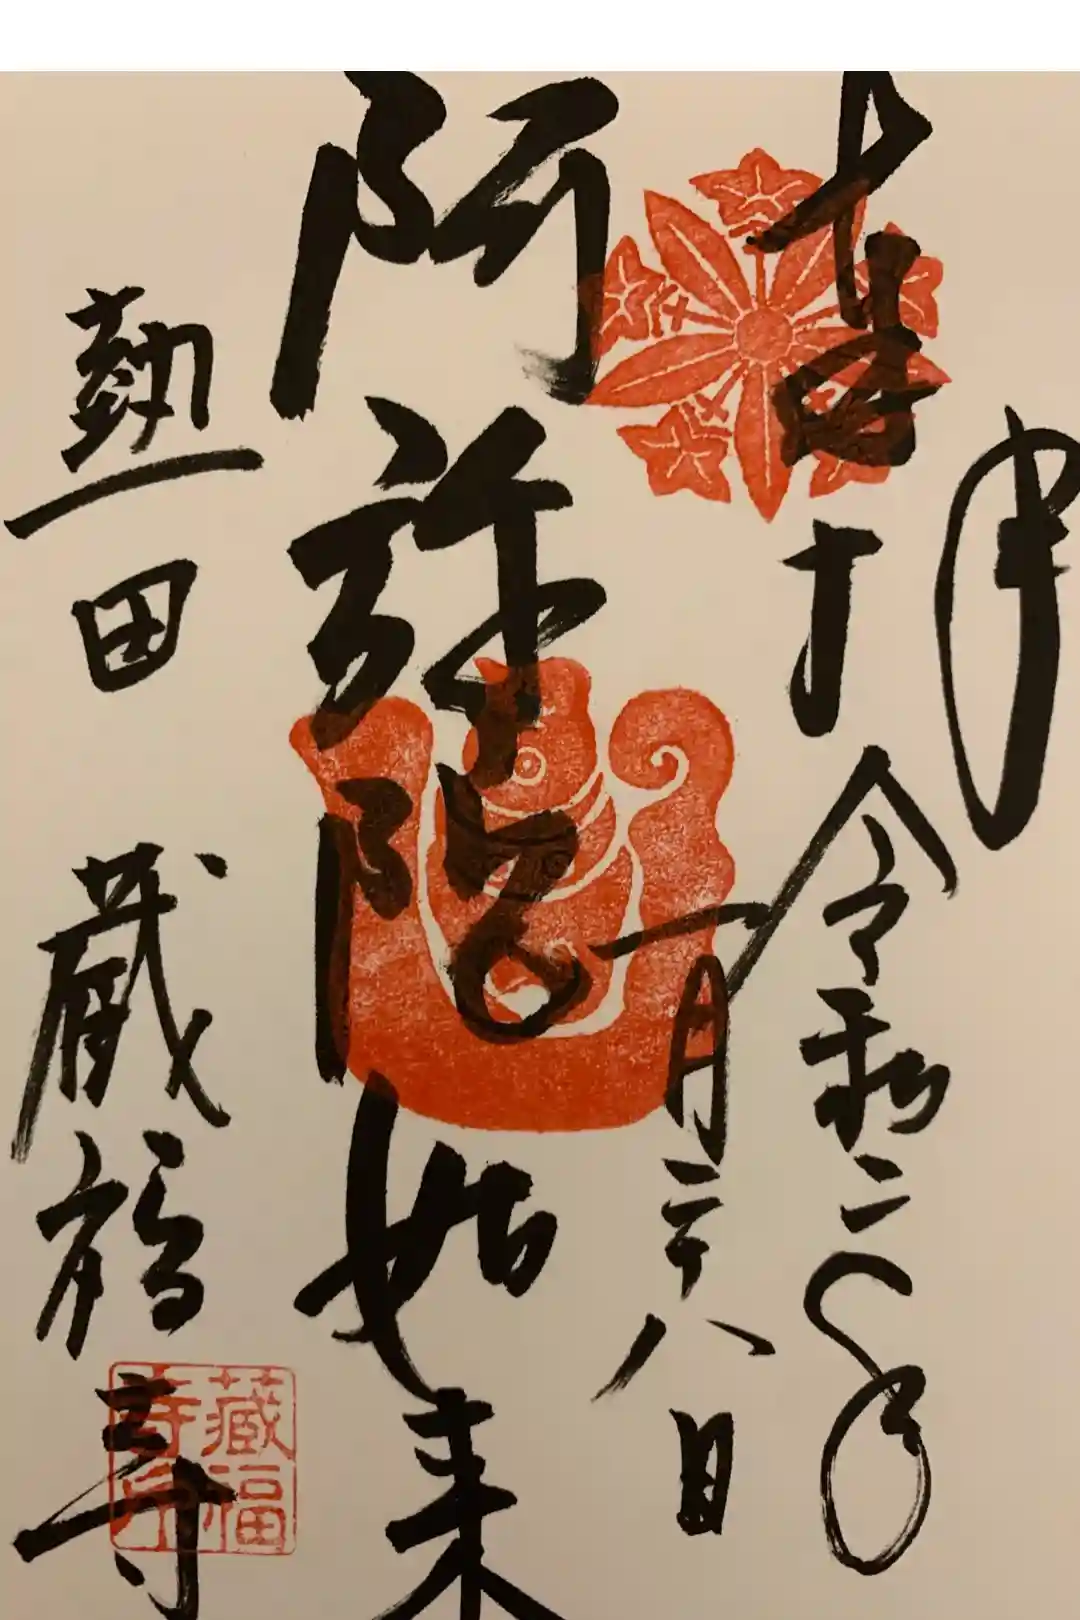 令和二年
一月二十八日
阿弥陀如来
熱田 蔵福寺
藏福寺印